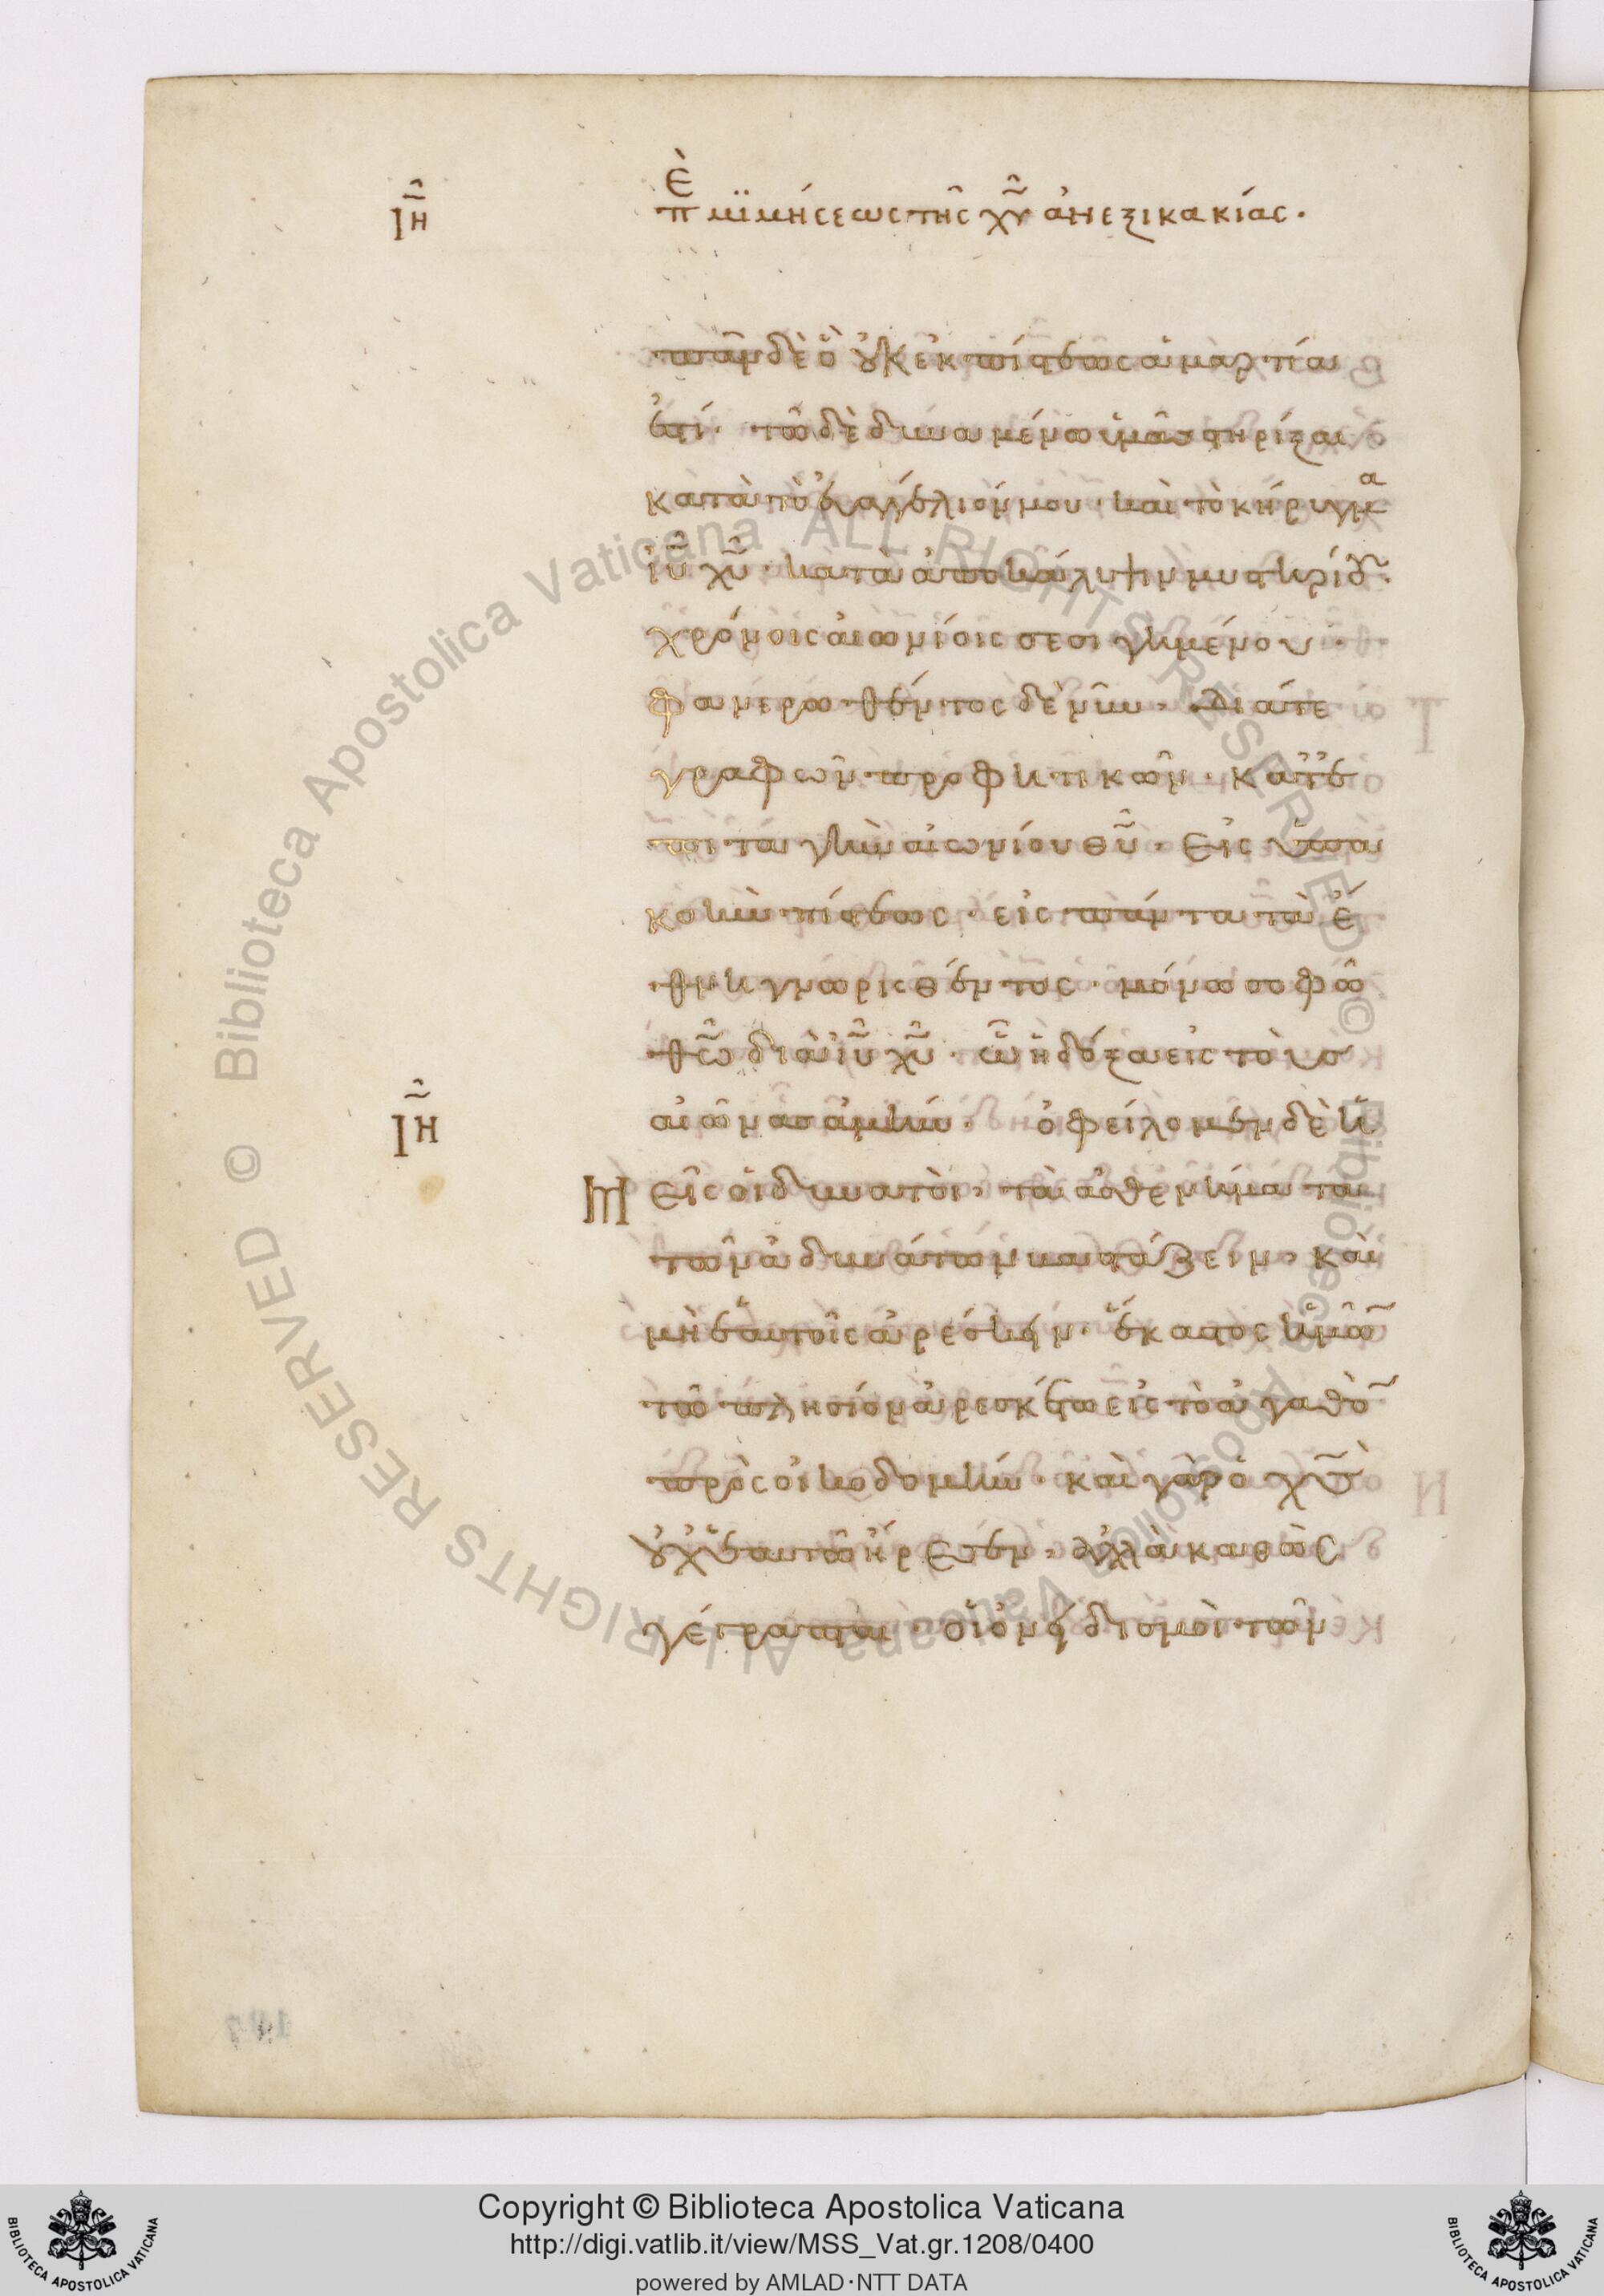 ΙΗ
Πὲ μϊμήσεως τῆς χῦ ἀνεξικακίας.
πᾶν δὲ ὃ οὐκ ἐκ πίστεως ἁμαρτία
ἐστί. τῶ δὲ δυναμένω ὑμᾶς στηρίξαι
κατὰ τὸ εὐαγγέλιόν μου. καὶ τὸ κήρυγμα
ἰῦ χῦ. κατὰ ἀποκάλυψιν μυστηρίου
χρόνοις αἰωνίοις σεσιγημένου.
φανερωθέντος δὲ νῦν. διά τε
γραφῶν προφητικῶν. κατ' ἐ
πιταγὴν αἰωνίου θῦ. εἰς ὑπα
κοὴν πίστεως. εἰς πάντα τὰ ἔ
θνη γνωρισθέντος. μόνω σοφῶ
θῶ διὰ ἰῦ χῦ. ὧ ἡ δόξα εἰς τοὺς
αἰῶνας ἀμήν. ὀφείλομεν δὲ ἡ
ΙΗ
μεῖς οἱ δυνατοὶ. τὰ ἀσθενήματα
τῶν ἀδυνάτων βαστάζειν. καὶ
μὴ ἑαυτοῖς ἀρέσκειν. ἕκαστος ἡμῶ
τῶ πλησίον ἀρεσκέτω εἰς τὸ ἀγαθὸ
πρὸς οἰκοδομήν. καὶ γὰρ ὁ χς
οὐχ ἑαυτῶ ἤρεσεν. ἀλλὰ καθὼς
γέγραπται. οἱ ὀνειδισμοὶ τῶν
Copyright © Biblioteca Apostolica Vaticana
http://digi.vatlib.it/view/MSS_Vat.gr.1208/0400
powered by AMLAD·NTT DATA
BIBLIOTECA APOSTOLICA VATICANA
BIBLIOTECA APOSTOLICA VATICANA
© Biblioteca Apostolica Vaticana ALL RIGHTS RESERVED © Biblioteca Apostolica Vaticana ALL RIGHTS RESERVED